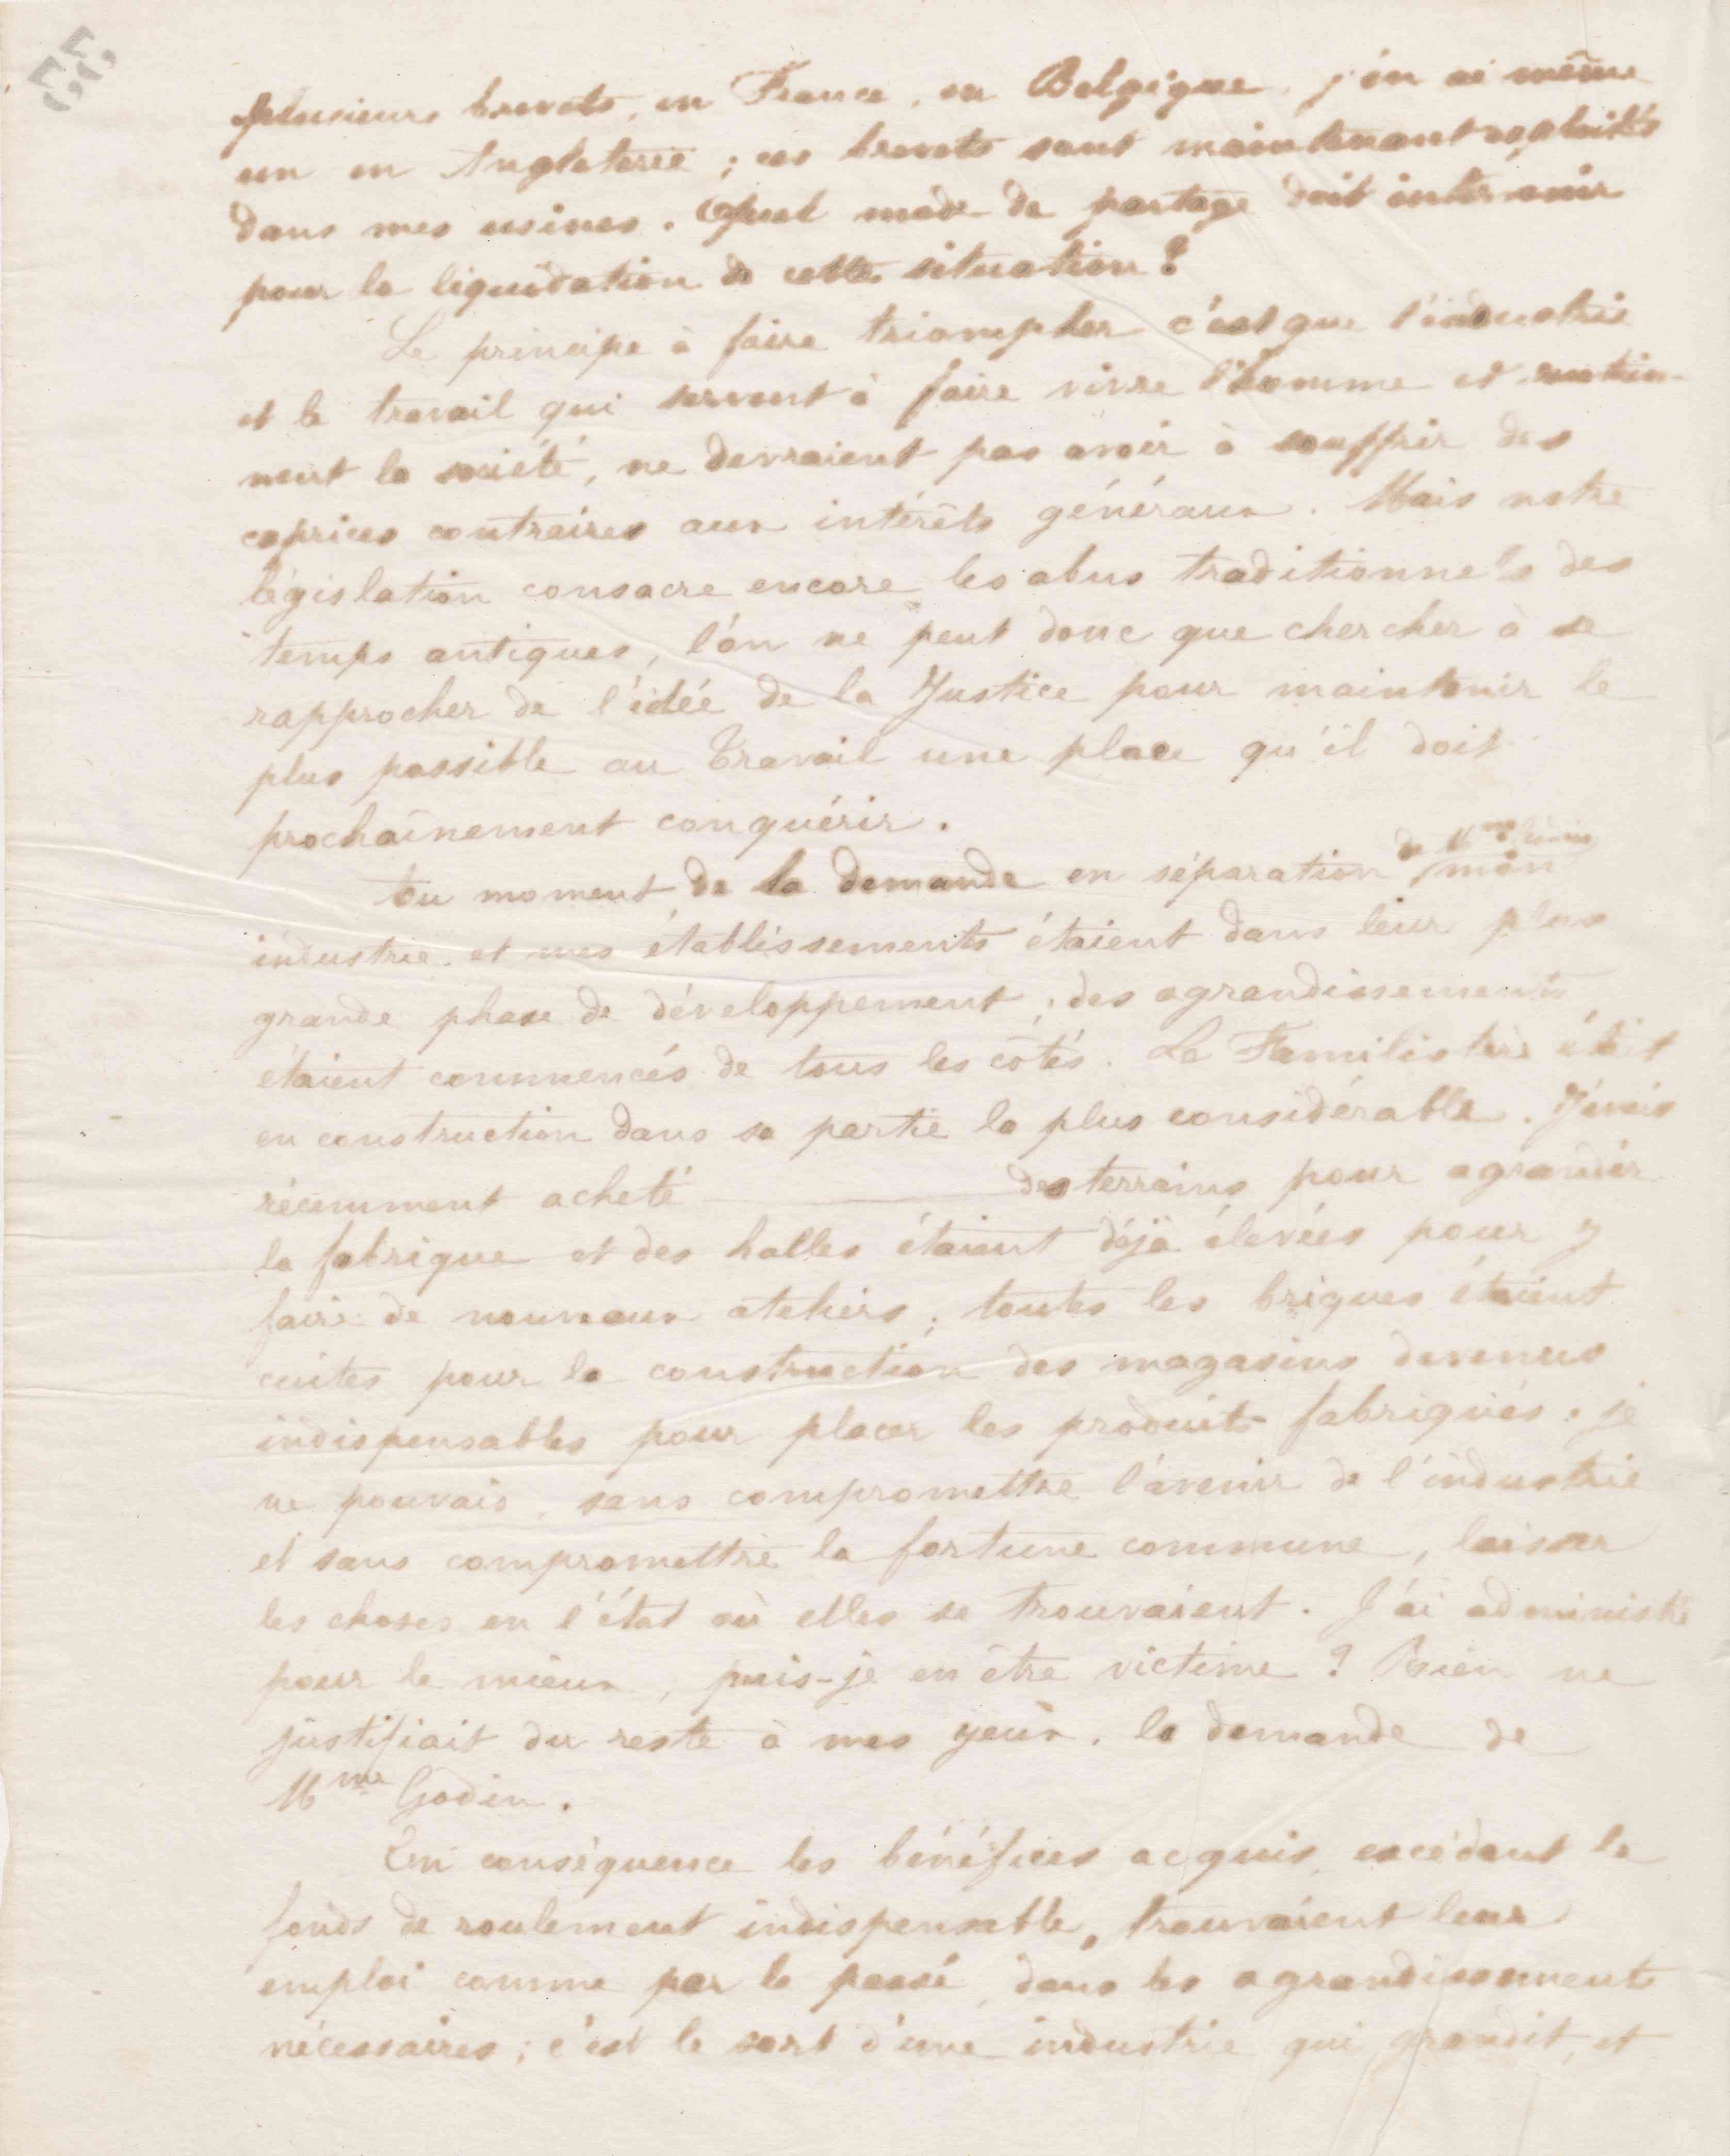 plusieurs brevets, en France, en Belgique, j'en ai même
un en Angleterre ; ces brevets sont maintenant exploités
dans mes usines. Quel mode de partage doit intervenir
pour la liquidation de cette situation ?
Le principe à faire triompher c'est que l'industrie
et le travail qui servent à faire vivre l'homme et soutien-
nent la société, ne devraient pas avoir à souffrir des
caprices contraires aux intérêts généraux. Mais notre
législation consacre encore les abus traditionnels des
temps antiques, l'on ne peut donc que chercher à se
rapprocher de l'idée de la Justice pour maintenir le
plus possible au Travail une place qu'il doit
prochainement conquérir.
de Mme Godin
Au moment de la demande en séparation, mon
industrie et mes établissements étaient dans leur plus
grande phase de développement ; des agrandissements
étaient commencés de tous les côtés. Le Familistère était
en construction dans sa partie la plus considérable. J'avais
récemment acheté des terrains pour agrandir
la fabrique et des halles étaient déjà élevées pour y
faire de nouveaux ateliers ; toutes les briques étaient
cuites pour la construction des magasins devenus
indispensables pour placer les produits fabriqués. je
ne pouvais, sans compromettre l'avenir de l'industrie
et sans compromettre la fortune commune, laisser
les choses en l'état où elles se trouvaient. J'ai administré
pour le mieux, puis-je en être victime ? Rien ne
justifiait du reste à mes yeux, la demande de
Mme Godin.
En conséquence les bénéfices acquis, excédant le
fonds de roulement indispensable, trouvaient leur
emploi comme par le passé, dans les agrandissements
nécessaires ; c'est le sort d'une industrie qui grandit, et